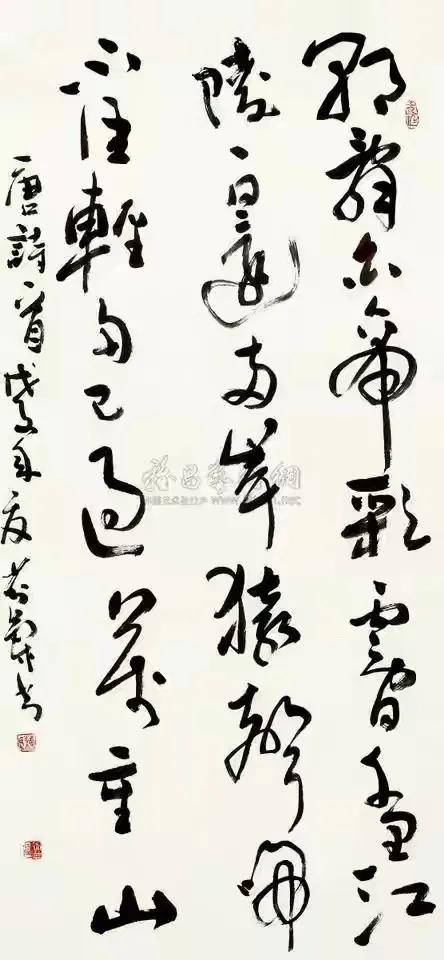 朝辭白帝彩雲間千里江
陵一日還兩岸猿聲啼
不住輕舟已過萬重山
唐詩一首戊子年夏書